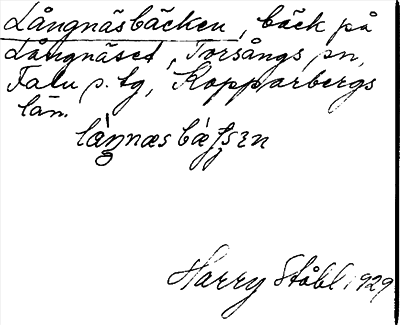 Långnäsbäcken, bäck på
Långnäset, Torsångs sn,
Falu s. tg, Kopparbergs
län.
Harry Ståhl 1929